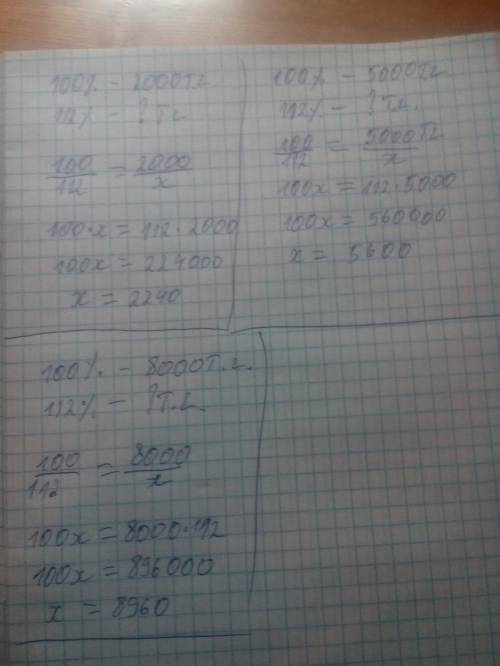 100% - 2000Тг
112% - ? Тг
100/112 = 2000/x
100·x = 112·2000
100x = 224000
x = 2240
100% - 5000Тг.
112% - ? Тг.
100/112 = 5000Тг/x
100x = 112·5000
100x = 560000
x = 5600
100% - 8000Т.г.
112% - ? Т.г.
100/112 = 8000/x
100x = 8000·112
100x = 896000
x = 8960